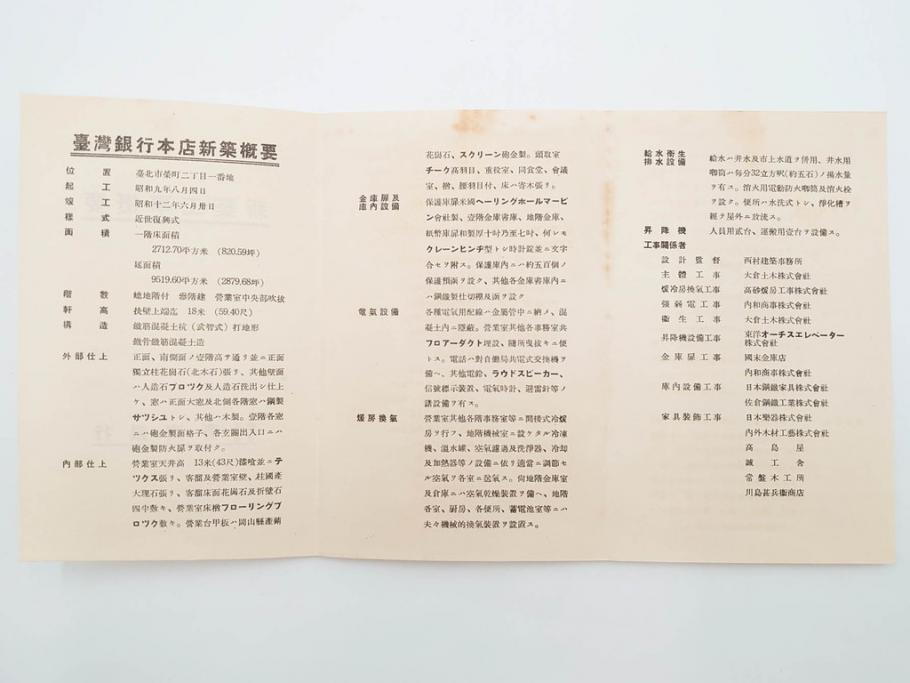 臺灣銀行本店新築概要
位置 臺北市榮町二丁目一番地
起工 昭和九年八月四日
竣工 昭和十二年六月卅日
樣式 近世復興式
面積 一階床面積
2712.70平方米 (820.59坪)
延面積
9519.60平方米 (2879.68坪)
階數 地地階付 參階建 營業室中央部吹拔
軒高 扶壁上端迄 18米 (59.40尺)
構造 鐵筋混凝土杭 (武智式) 打地形
鐵骨鐵筋混凝土造
外部仕上 正面、南側面ノ壹階高ヲ通リ並ニ正面
獨立柱花崗石(北木石)張リ、其他壁面
ハ人造石ブロツク及人造石洗出シ仕上
ケ、窓ハ正面大窓及北側各階窓ハ鋼製
サツシユトシ、其他ハ木製。壹階各窓
ニハ砲金製面格子、各玄關出入口ニハ
砲金製防火扉ヲ取付ク。
內部仕上 營業室天井高 13米(43尺)漆喰並ニテ
ツクス張リ、客溜及營業室壁、柱國產
大理石張リ、客溜床面花崗石及折壁石
四半敷キ、營業室床檜フローリングブ
ロツク敷キ。營業台甲板ハ岡山縣產蘭
花崗石、スクリーン砲金製。頭取室
チーク高羽目、重役室、同食堂、會議
室、檜、腰羽目付、床ハ寄木張リ。
金庫扉及庫內設備 保護庫扉米國ヘーリングホールマービ
ン會社製、壹階金庫書庫、地階金庫、
紙幣庫扉和製厚十吋乃至七吋、何レモ
クレーンヒンヂ型トシ時計錠並ニ文字
合セヲ附ス。保護庫內ニハ約五百個ノ
保護預函ヲ設ク、其他各金庫書庫內ニ
ハ鋼鐵製仕切棚及函ヲ設ク
電氣設備 各種電氣用配線ハ金屬管中ニ納メ、混
凝土內ニ隱蔽。營業室其他各事務室共
フロアーダクト埋設、隨所曳拔キニ便
トス。電話ハ對自働局共電式交換機ヲ
備ヘ、其他電鈴、ラウドスピーカー、
信號標示裝置、電氣時計、避雷針等ノ
諸設備ヲ有ス。
煖房換氣 營業室其他各階事務室等ニ間接式冷煖
房ヲ行フ、地階機械室ニ設ケタル冷凍
機、溫水罐、空氣濾過及洗淨器、冷却
及加熱器等ノ設備ニ依リ適當ニ調節セ
ル空氣ヲ各室ニ送氣ス。尙地階金庫室
及倉庫ニハ空氣乾燥裝置ヲ備ヘ、地階
各室、厨房、各便所、蓄電池室等ニハ
夫々機械的換氣裝置ヲ設置ス。
給水衞生排水設備 給水ハ井水及市上水道ヲ併用、井水用
喞筒ハ每分32立方呎(約五石)ノ揚水量
ヲ有ス。消火用電動防火喞筒及消火栓
ヲ設ク。便所ハ水洗式トシ、淨化槽ヲ
經テ屋外ニ放流ス。
昇降機 人員用貳台、運搬用壹台ヲ設備ス。
工事關係者
設計監督 西村建築事務所
主體工事 大倉土木株式會社
煖冷房換氣工事 高砂煖房工事株式會社
強弱電工事 內和商事株式會社
衞生工事 大倉土木株式會社
昇降機設備工事 東洋オーチスエレベーター株式會社
金庫扉工事 國末金庫店
內和商事株式會社
庫內設備工事 日本鋼鐵家具株式會社
佐倉鋼鐵工業株式會社
家具裝飾工事 日本樂器株式會社
內外木材工藝株式會社
高島屋
誠工舍
常盤木工所
川島甚兵衞商店